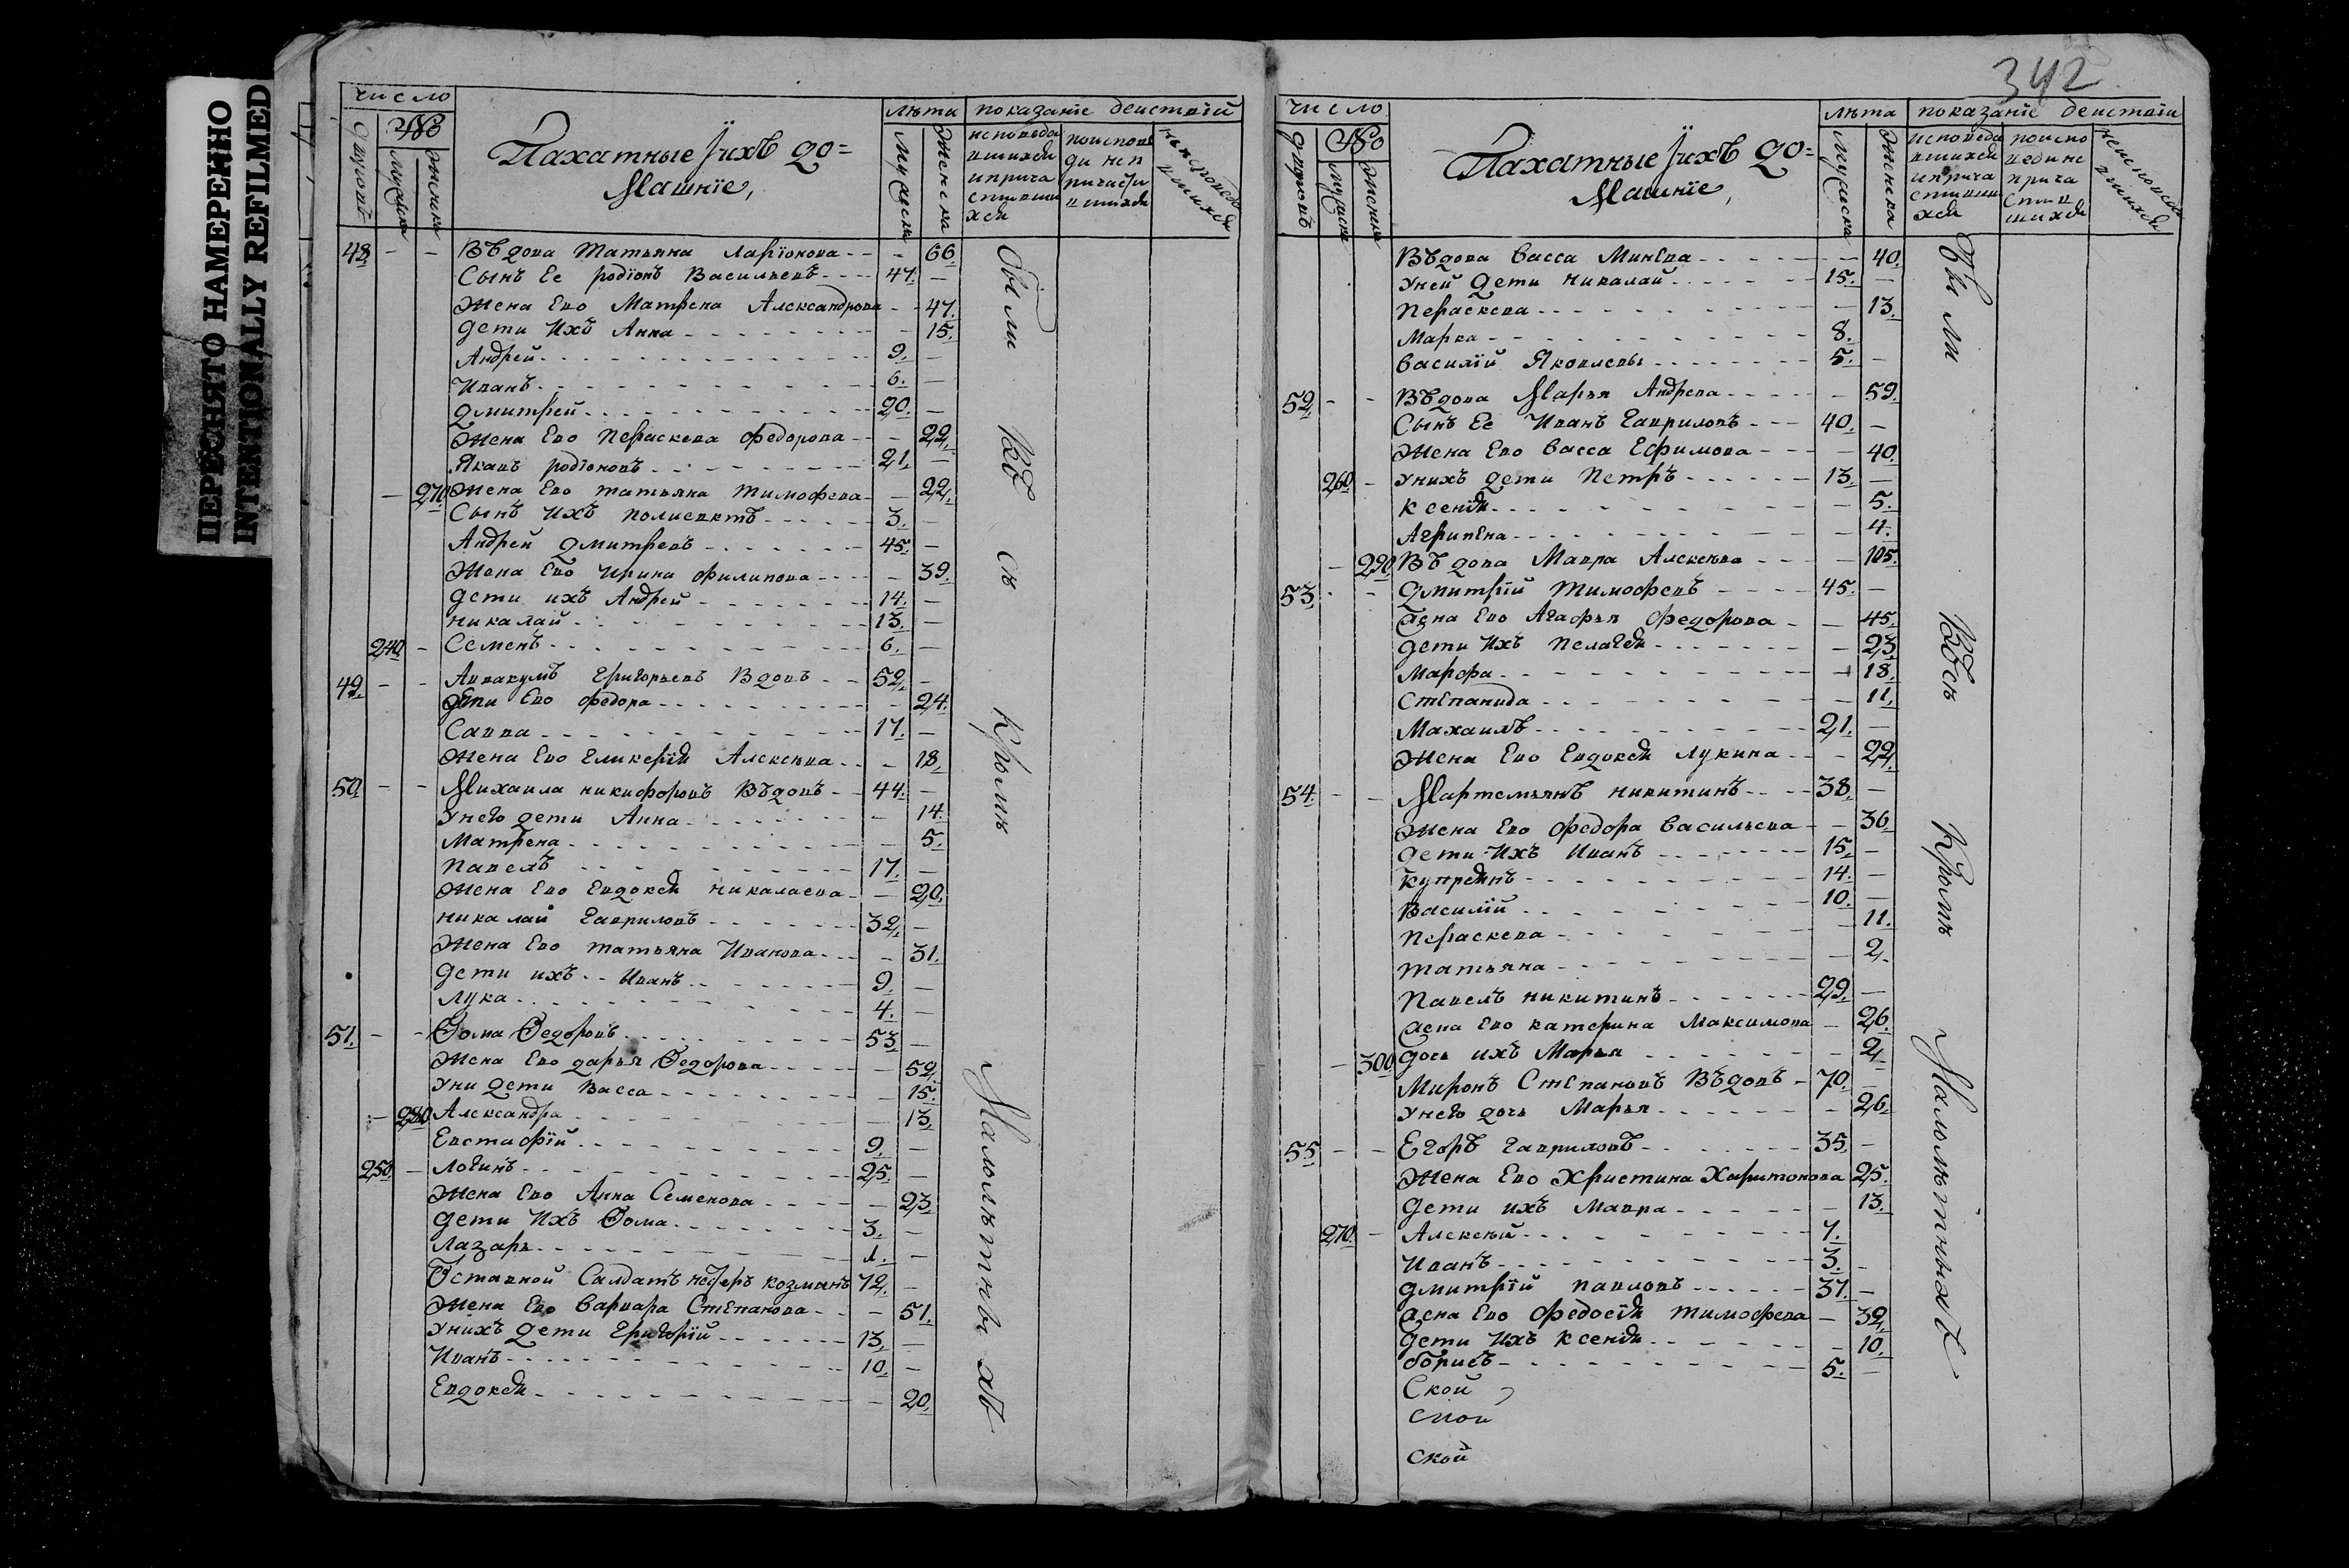 ПЕРЕСНЯТО НАМЕРЕННО
INTENTIONALLY REFILMED
342
число
лѣта показанїе деиствїй
Пахатные Їихъ до=
машнїе,
мужеска
женска
исповеда
вшихся
иприча
стивши
хся
48. - - Въдова Татьяна Ларїонова - 66.
Сынъ Ее родїонъ Васильевъ 47. -
Жена Ево Матрена Александрова - 47.
дети Ихъ Анна - 15.
Андрей 9. -
Иванъ 6. -
дмитрей 20. -
Жена Ево Пераскева федорова - 22.
Яковъ родїоновъ 21. -
- 270 Жена Ево татьяна тимофева - 22.
Сынъ Ихъ полиевктъ 3. -
Андрей дмитревъ 45. -
Жена Ево Ирина филипова - 39.
дети ихъ Андрей 14. -
николай 13. -
240. - Семенъ 6. -
49. - - Аввакумъ Григорьевъ Вдовъ 52. -
дети Ево федора - 24.
Савва 17. -
Жена Ево Гликерїя Алексѣева - 18.
50. - - Михаила никифоровъ Въдовъ 44. -
Унего дети Анна - 14.
Матрена - 5.
Павелъ 17. -
Жена Ево Евдокея николаева - 20.
николай Гавриловъ 32. -
Жена Ево татьяна Иванова - 31.
дети ихъ Иванъ 9. -
Лука 4. -
51. - - Ѳома Ѳедоровъ 53. -
Жена Ево дарья Ѳедорова - 52.
Уни дети Васса - 15.
- 280 Александра - 13.
Евстафїй 9. -
250. - Логинъ 25. -
Жена Ево Анна Семенова - 23.
дети Ихъ Ѳома 3. -
Лазарь 1. -
Ѡставной Салдатъ козминъ 72. -
Жена Ево варвара Степанова - 51.
Унихъ дети Григорїй 13. -
Иванъ 10. -
Евдокея - 20.
Были Всѣ Кромѣ Малолѣтныхъ
число
лѣта показанїе деиствїи
Пахатные Їихъ до=
машнїе,
мужеска
женска
исповеда
вшихся
иприча
стивши
хся
Въдова васса Минева - 40.
Уней дети николай 15. -
Пераскева - 13.
Марка 8.
василїй Яковлевы 5. -
52. - - Въдова Марья Андрева - 59.
Сынъ Ее Иванъ Гавриловъ 40. -
Жена Ево васса Ефимова - 40.
260. - Унихъ дети Петръ 13. -
Ксенїя - 5.
Агрипена - 4.
- 290 Въдова Мавра Алексѣева - 105.
53. - - дмитрїй тимофевъ 45. -
жена Ево Агафья федорова - 45.
дети Ихъ Пелагея - 23.
Марфа - 18.
Степанида - 11.
Махаилъ 21. -
Жена Ево Евдокея лукина - 22.
54. - - Мартемьянъ никитинъ 38. -
Жена Ево федора васильева - 36.
дети Ихъ Иванъ 15. -
купреянъ 14. -
Василїй 10. -
Пераскева - 11.
татьяна - 2.
Павелъ никитинъ 29. -
жена Ево катерина Максимова - 26.
- 300 дочь ихъ Марья - 2.
Миронъ Степановъ Въдовъ 70. -
Унего дочь Марья - 26.
55. - - Егоръ гавриловъ 35. -
Жена Ево Христина Харитонова 25.
дети ихъ Мавра - 13.
270. - Алексѣй 7.
Иванъ 3. -
дмитрїй павловъ 37. -
жена Ево федосїя тимофева - 32.
дети Ихъ Ксенїя - 10.
борисъ 5. -
Ской
ской
ской
Были Всѣ Кромѣ Малолѣтныхъ